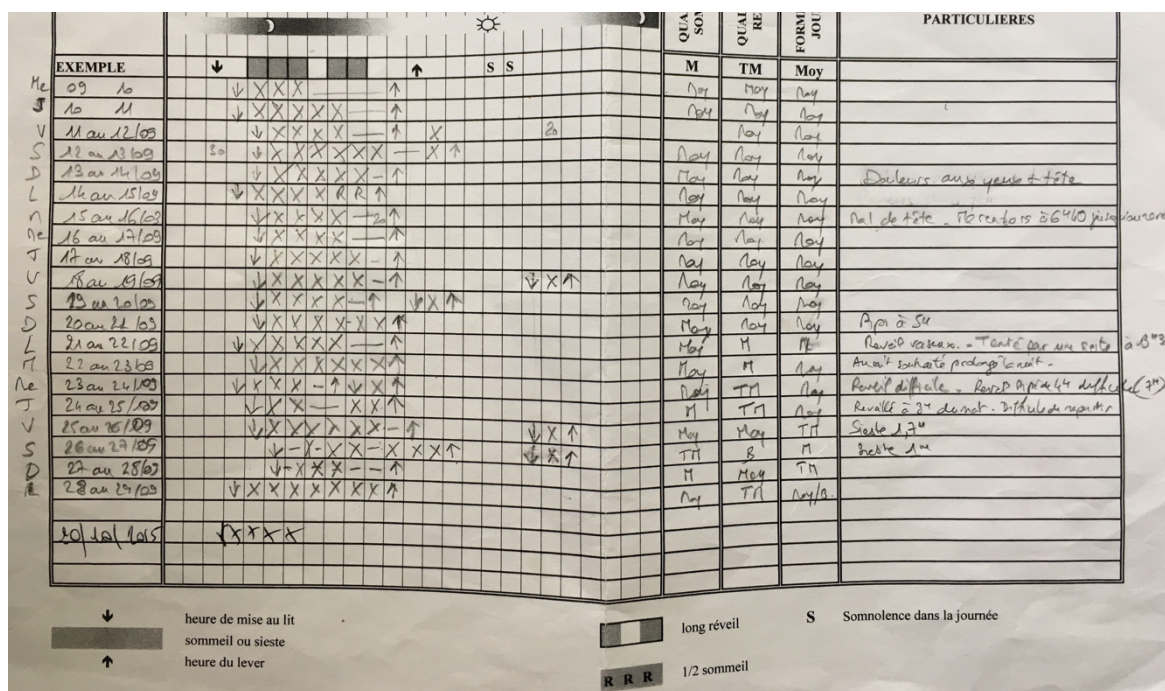 QUA SOM QUAL RE FORME JOU PARTICULIERES
EXEMPLE S S M TM Moy
Me 09 10 ↓ X X X ↑ Moy Moy Moy
J 10 11 ↓ X X X X X — ↑ Moy Moy Moy
V 11 au 12/09 ↓ X X X X — ↑ X 20 Moy Moy
S 12 au 13/09 30 ↓ X X X X X X — X ↑ Moy Moy Moy
D 13 au 14/09 ↓ X X X X X - ↑ Moy Moy Moy Douleurs aux yeux + tête
L 14 au 15/09 ↓ X X X X R R ↑ Moy Moy Moy
M 15 au 16/09 ↓ X X X X — 20 ↑ Moy Moy Moy Mal de tête
Me 16 au 17/09 ↓ X X X X — ↑ Moy Moy Moy
J 17 au 18/09 ↓ X X X X X - ↑ Moy Moy Moy
V 18 au 19/09 ↓ X X X X X - ↑ ↓ X ↑ Moy Moy Moy
S 19 au 20/09 ↓ X X X X - ↑ ↓ X ↑ Moy Moy Moy
D 20 au 21/09 ↓ X X X X - X X ↑ Moy Moy Moy Pipi à 5H
L 21 au 22/09 ↓ X X X X X X X ↑ Moy M M Réveil vaseux. - Tenté par une sieste à
M 22 au 23/09 ↓ X X X X X X ↑ Moy M Moy Aurait souhaité prolonger la nuit.
Me 23 au 24/09 ↓ X X X - ↑ ↓ X ↑ Moy TM Moy Réveil difficile - Réveil Pipi de 4H difficile (7H)
J 24 au 25/09 ↓ X X — X X ↑ M TM Moy Réveillé à du mat. Difficile de repartir
V 25 au 26/09 ↓ X X X X X X - ↑ ↓ X ↑ Moy Moy TM Sieste 1,7H
S 26 au 27/09 ↓ - X - X X X X X X ↑ ↓ X ↑ TM B M Sieste 1H
D 27 au 28/09 ↓ - X X X - - ↑ M Moy TM
L 28 au 29/09 ↓ X X X X X X X ↑ Moy TM Moy/B.
20/10/2015 ↓ X X X X
↓ heure de mise au lit long réveil S Somnolence dans la journée
sommeil ou sieste
↑ heure du lever R R R 1/2 sommeil